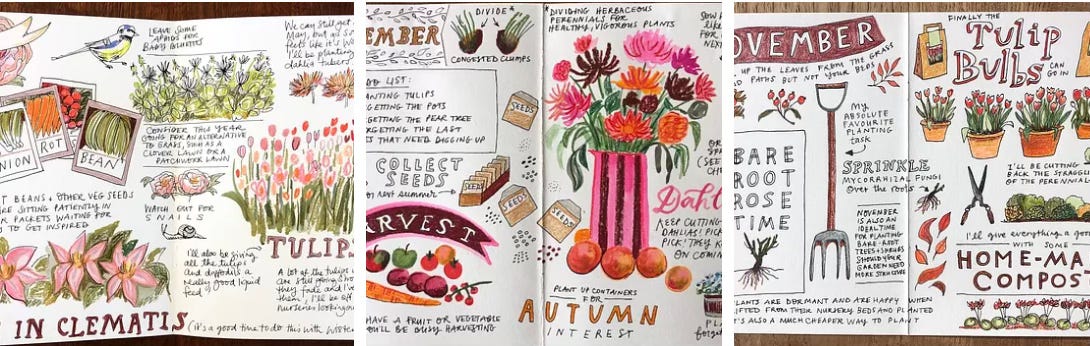 LEAVE SOME
APHIDS FOR
BABY BLUETITS
We can still get
May, but all so
feels like it's
I'll be planting
dahlia tubers
ROT
BEAN
CONSIDER THIS YEAR
GOING FOR AN ALTERNATIVE
TO GRASS, SUCH AS A
CLOVER LAWN OR A
PATCHWORK LAWN
BEANS + OTHER VEG SEEDS
SITTING PATIENTLY IN
PACKETS WAITING FOR
TO GET INSPIRED
WATCH OUT FOR
SNAILS
I'll also be giving
all the tulips
and daffodils a
really good liquid
feed
TULIP
A lot of the tulips
are still going
they fade and I've
them, I'll be off
nurseries looking
IN CLEMATIS
(it's a good time to do this with
EMBER
DIVIDE*
CONGESTED CLUMPS
*DIVIDING HERBACEOUS
PERENNIALS FOR
HEALTHY, VIGOROUS PLANTS
LIST:
ANTING TULIPS
GETTING THE POTS
GETTING THE PEAR TREE
GETTING THE LAST
THAT NEED DIGGING UP
SEEDS
COLLECT
SEEDS
SEEDS
SEEDS
SEEDS
ARVEST
Dahl
KEEP CUTTING
DAHLIAS! PICK
PICK! THEY K
ON COMIN
PLANT UP CONTAINERS
FOR
AUTUMN
INTEREST
HAVE A FRUIT OR VEGETABLE
OU'LL BE BUSY HARVESTING
OVEMBER
UP THE LEAVES FROM THE GRASS
PATHS BUT NOT YOUR BEDS
My
ABSOLUTE
FAVOURITE
PLANTING
TASK
BARE
ROOT
ROSE
TIME
SPRINKLE
MYCORRHIZAL FUNGI
over the roots
NOVEMBER
IS ALSO AN
IDEAL TIME
FOR PLANTING
BARE-ROOT
TREES + SHRUBS
SHOULD YOUR
GARDEN NEED
MORE STRUCTURE
PLANTS ARE DORMANT AND ARE HAPPY WHEN
LIFTED FROM THEIR NURSERY BEDS AND PLANTED
IT'S ALSO A MUCH CHEAPER WAY TO PLANT
FINALLY THE
Tulip
Bulbs
CAN
GO IN
I'LL BE CUTTING
BACK THE
OF THE PERENNIAL
I'll give everything a good
WITH SOME
HOME-MA
COMPOST